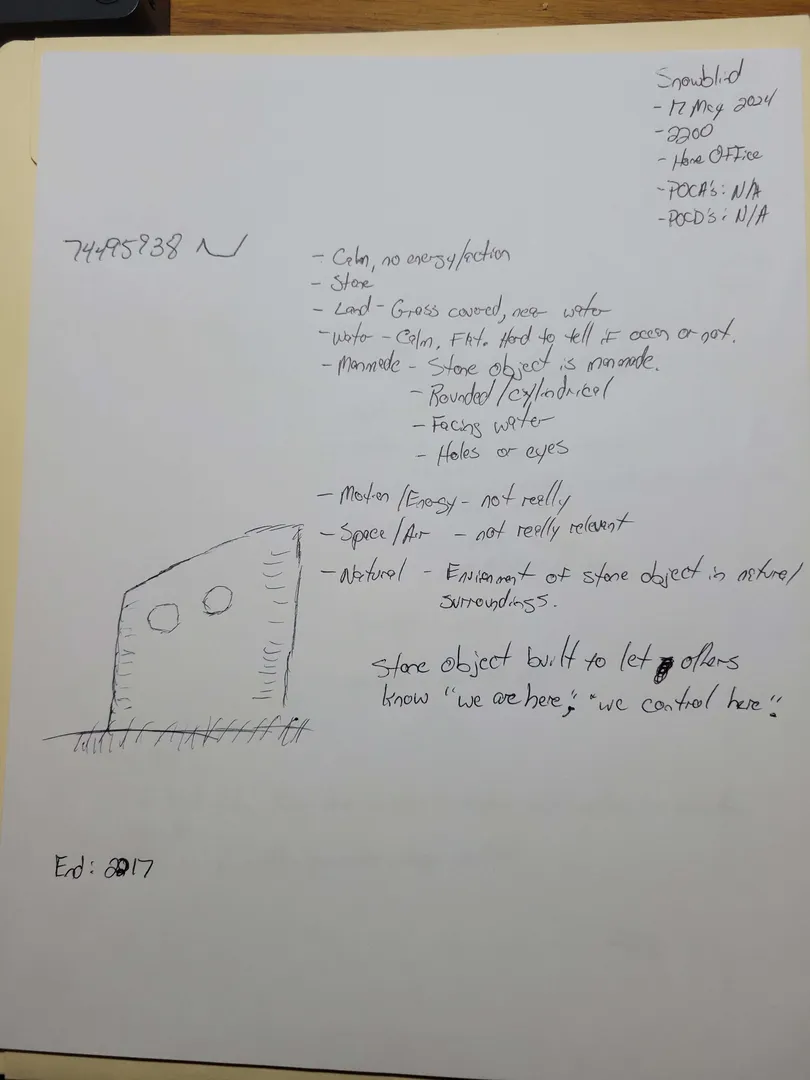 Snowblid
- 17 May 2024
- 2200
- Home Office
- POCA's: N/A
- POCD's: N/A
74495938
- Calm, no energy/action
- Stone
- Land - Grass covered, near water
- Water - Calm, Flat. Hard to tell if ocean or not.
- Manmade - Stone object is manmade.
- Rounded/cylindrical
- Facing water
- Holes or eyes
- Motion/Energy - not really
- Space/Air - not really relevant
- Natural - Enviornment of stone object in natural
surroundings.
Stone object built to let others
know "we are here", "we control here".
End: 2217